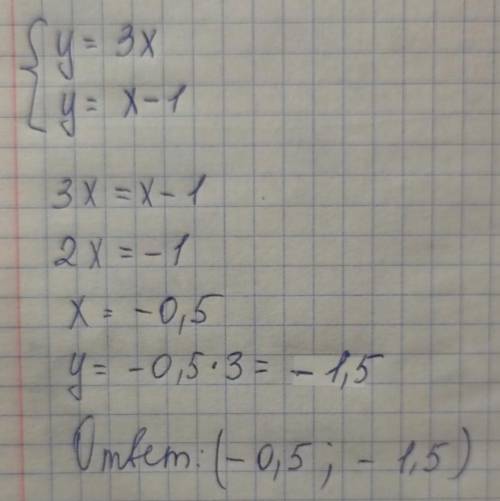 y = 3x
y = x-1
3x = x-1
2x = -1
x = -0,5
y = -0,5·3 = -1,5
Ответ: (-0,5; -1,5)